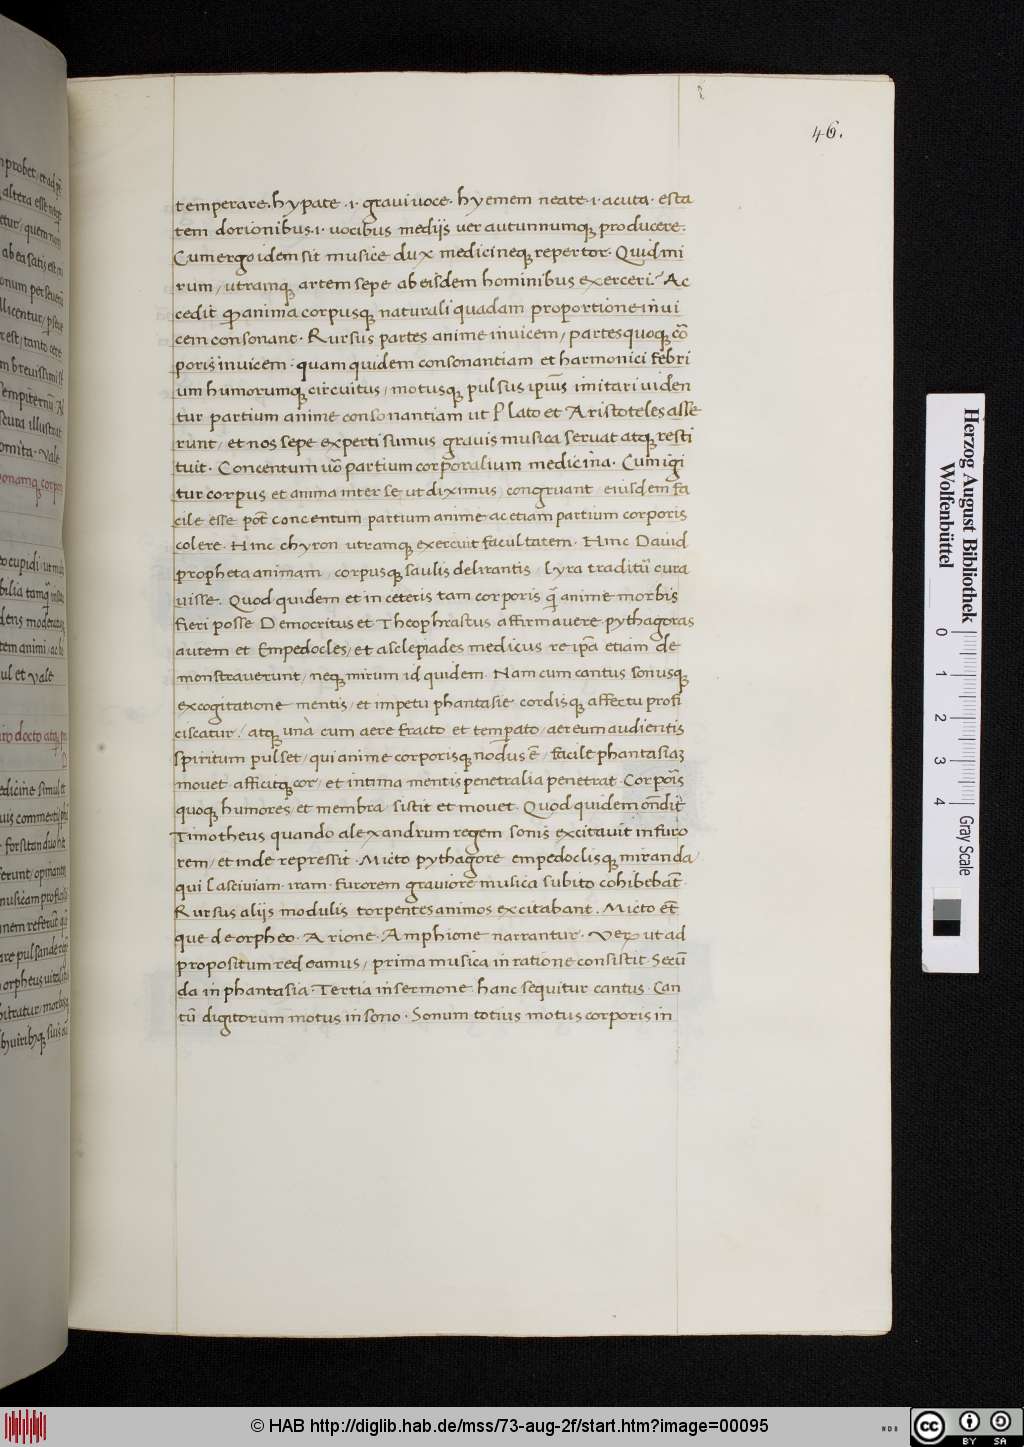 46.
temperare. hypate .i. gravi voce. hyemem neate .i. acuta. esta
tem dorionibus .i. vocibus mediis ver autumnumq; producere.
Cum ergo idem sit musice dux medicineq; repertor. Quid mi
rum / utramq; artem sepe ab eisdem hominibus exerceri? Ac
cedit ꝙ anima corpusq; naturali quadam proportione invi
cem consonant. Rursus partes anime invicem / partes quoq; cō
poris invicem. quam quidem consonantiam et harmonici febri
um humorumq; circuitus / motusq; pulsus ip̄ius imitari viden
tur partium anime consonantiam ut Plato et Aristoteles asse
runt / et nos sepe experti sumus gravis musica servat atq; resti
tuit. Concentum vō partium corporalium medicina. Cum igi
tur corpus et anima inter se ut diximus / congruant / eiusdem fa
cile esse pōt concentum partium anime ac etiam partium corporis
colere. Hinc chyron utramq; exercuit facultatem. Hinc David
propheta animam / corpusq; saulis delirantis / lyra traditū cura
visse. Quod quidem et in ceteris tam corporis q̄ anime morbis
fieri posse Democritus et Theophrastus affirmavere. pythagoras
autem et Empedocles / et asclepiades medicus re ip̄a etiam de
monstraverunt / neq; mirum id quidem. Nam cum cantus sonusq;
ex cogitatione mentis / et impetu phantasie cordisq; affectu profi
ciscatur / atq; unà cum aere fracto et temp̄ato / aereum audientis
spiritum pulset / qui anime corporisq; nodus ē / facile phantasiaʒ
movet afficitq; cor / et intima mentis penetralia penetrat. Corpor̄is
quoq; humores et membra / sistit et movet. Quod quidem on̄dit
Timotheus quando alexandrum regem sonis excitavit in furo
rem / et inde repressit. Micto pythagore empedoclisq; miranda /
qui lasciviam. iram. furorem graviore musica subito cohibebāt.
Rursus aliis modulis torpentes animos excitabant. Micto ēt
que de orpheo. Arione. Amphione narrantur. Veꝝ ut ad
propositum redeamus / prima musica in ratione consistit. Secū
da in phantasia. Tertia in sermone hanc sequitur cantus. Can
tū digitorum motus in sono. Sonum totius motus corporis in
Herzog August Bibliothek
Wolfenbüttel
0 1 2 3 4
Gray Scale
© HAB http://diglib.hab.de/mss/73-aug-2f/start.htm?image=00095
WDB
cc BY SA